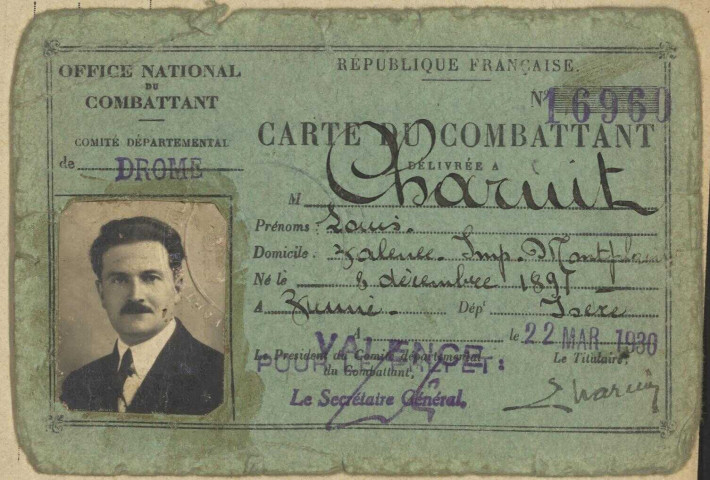 OFFICE NATIONAL
DU
COMBATTANT
COMITÉ DÉPARTEMENTAL
de DROME
RÉPUBLIQUE FRANÇAISE.
N° 16960
CARTE DU COMBATTANT
DÉLIVRÉE A
M Charuit
Prénoms Louis.
Domicile: Valence. Imp. 
Né le 8 décembre 1897
A Dépt Isere
A VALENCE le 22 MAR 1930
Le Président du Comité départemental
du Combattant,
POUR ET
Le Secrétaire Général,
Le Titulaire,